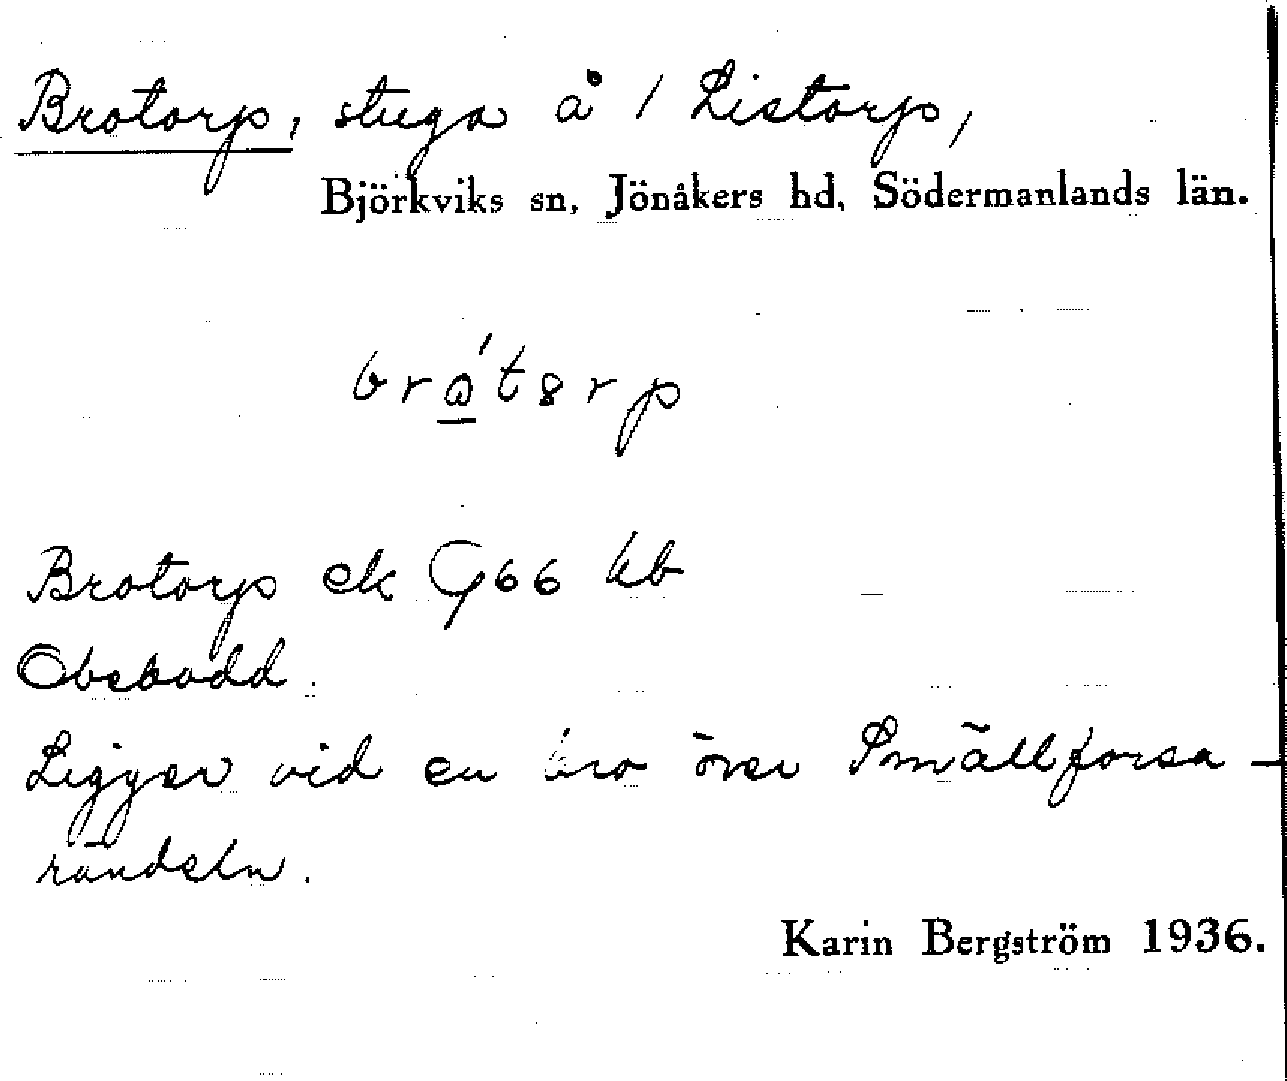 Brotorp, stuga å 1 Listorp,
Björkviks sn, Jönåkers hd, Södermanlands län.
Brotorp ek G66 kb
Obebodd.
Ligger vid en bro över Smällforsa-
rändeln.
Karin Bergström 1936.